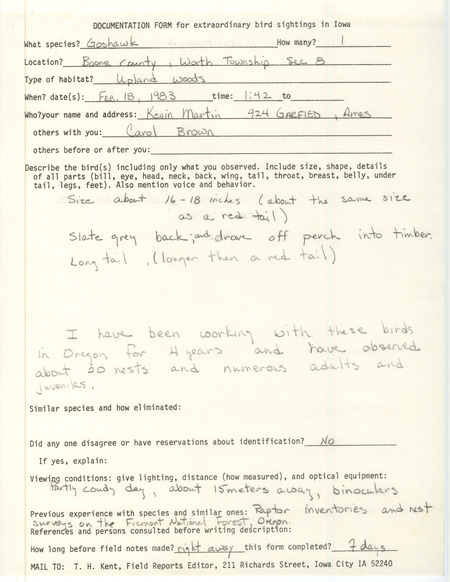 DOCUMENTATION FORM for extraordinary bird sightings in Iowa
What species? Goshawk How many? 1
Location? Boone County, Worth Township Sec 8
Type of habitat? Upland woods
When? date(s): FEB. 18, 1983 time: 1:42 to
Who?your name and address: Kevin Martin 924 GARFIELD, Ames
others with you: Carol Brown
others before or after you:
Describe the bird(s) including only what you observed. Include size, shape, details
of all parts (bill, eye, head, neck, back, wing, tail, throat, breast, belly, under
tail, legs, feet). Also mention voice and behavior.
Size about 16-18 inches (about the same size
as a red tail)
Slate grey back; and drove off perch into timber.
Long tail, (longer then a red tail)
I have been working with these birds
in Oregon for 4 years and have observed
about 20 nests and numerous adults and
juveniles.
Similar species and how eliminated:
Did any one disagree or have reservations about identification? No
If yes, explain:
Viewing conditions: give lighting, distance (how measured), and optical equipment:
Partly coudy day, about 15meters away, binoculars
Previous experience with species and similar ones: Raptor inventories and nest
surveys on the Fremont National Forest, Oregon.
References and persons consulted before writing description:
How long before field notes made? right away this form completed? 7 days
MAIL TO: T. H. Kent, Field Reports Editor, 211 Richards Street, Iowa City IA 52240